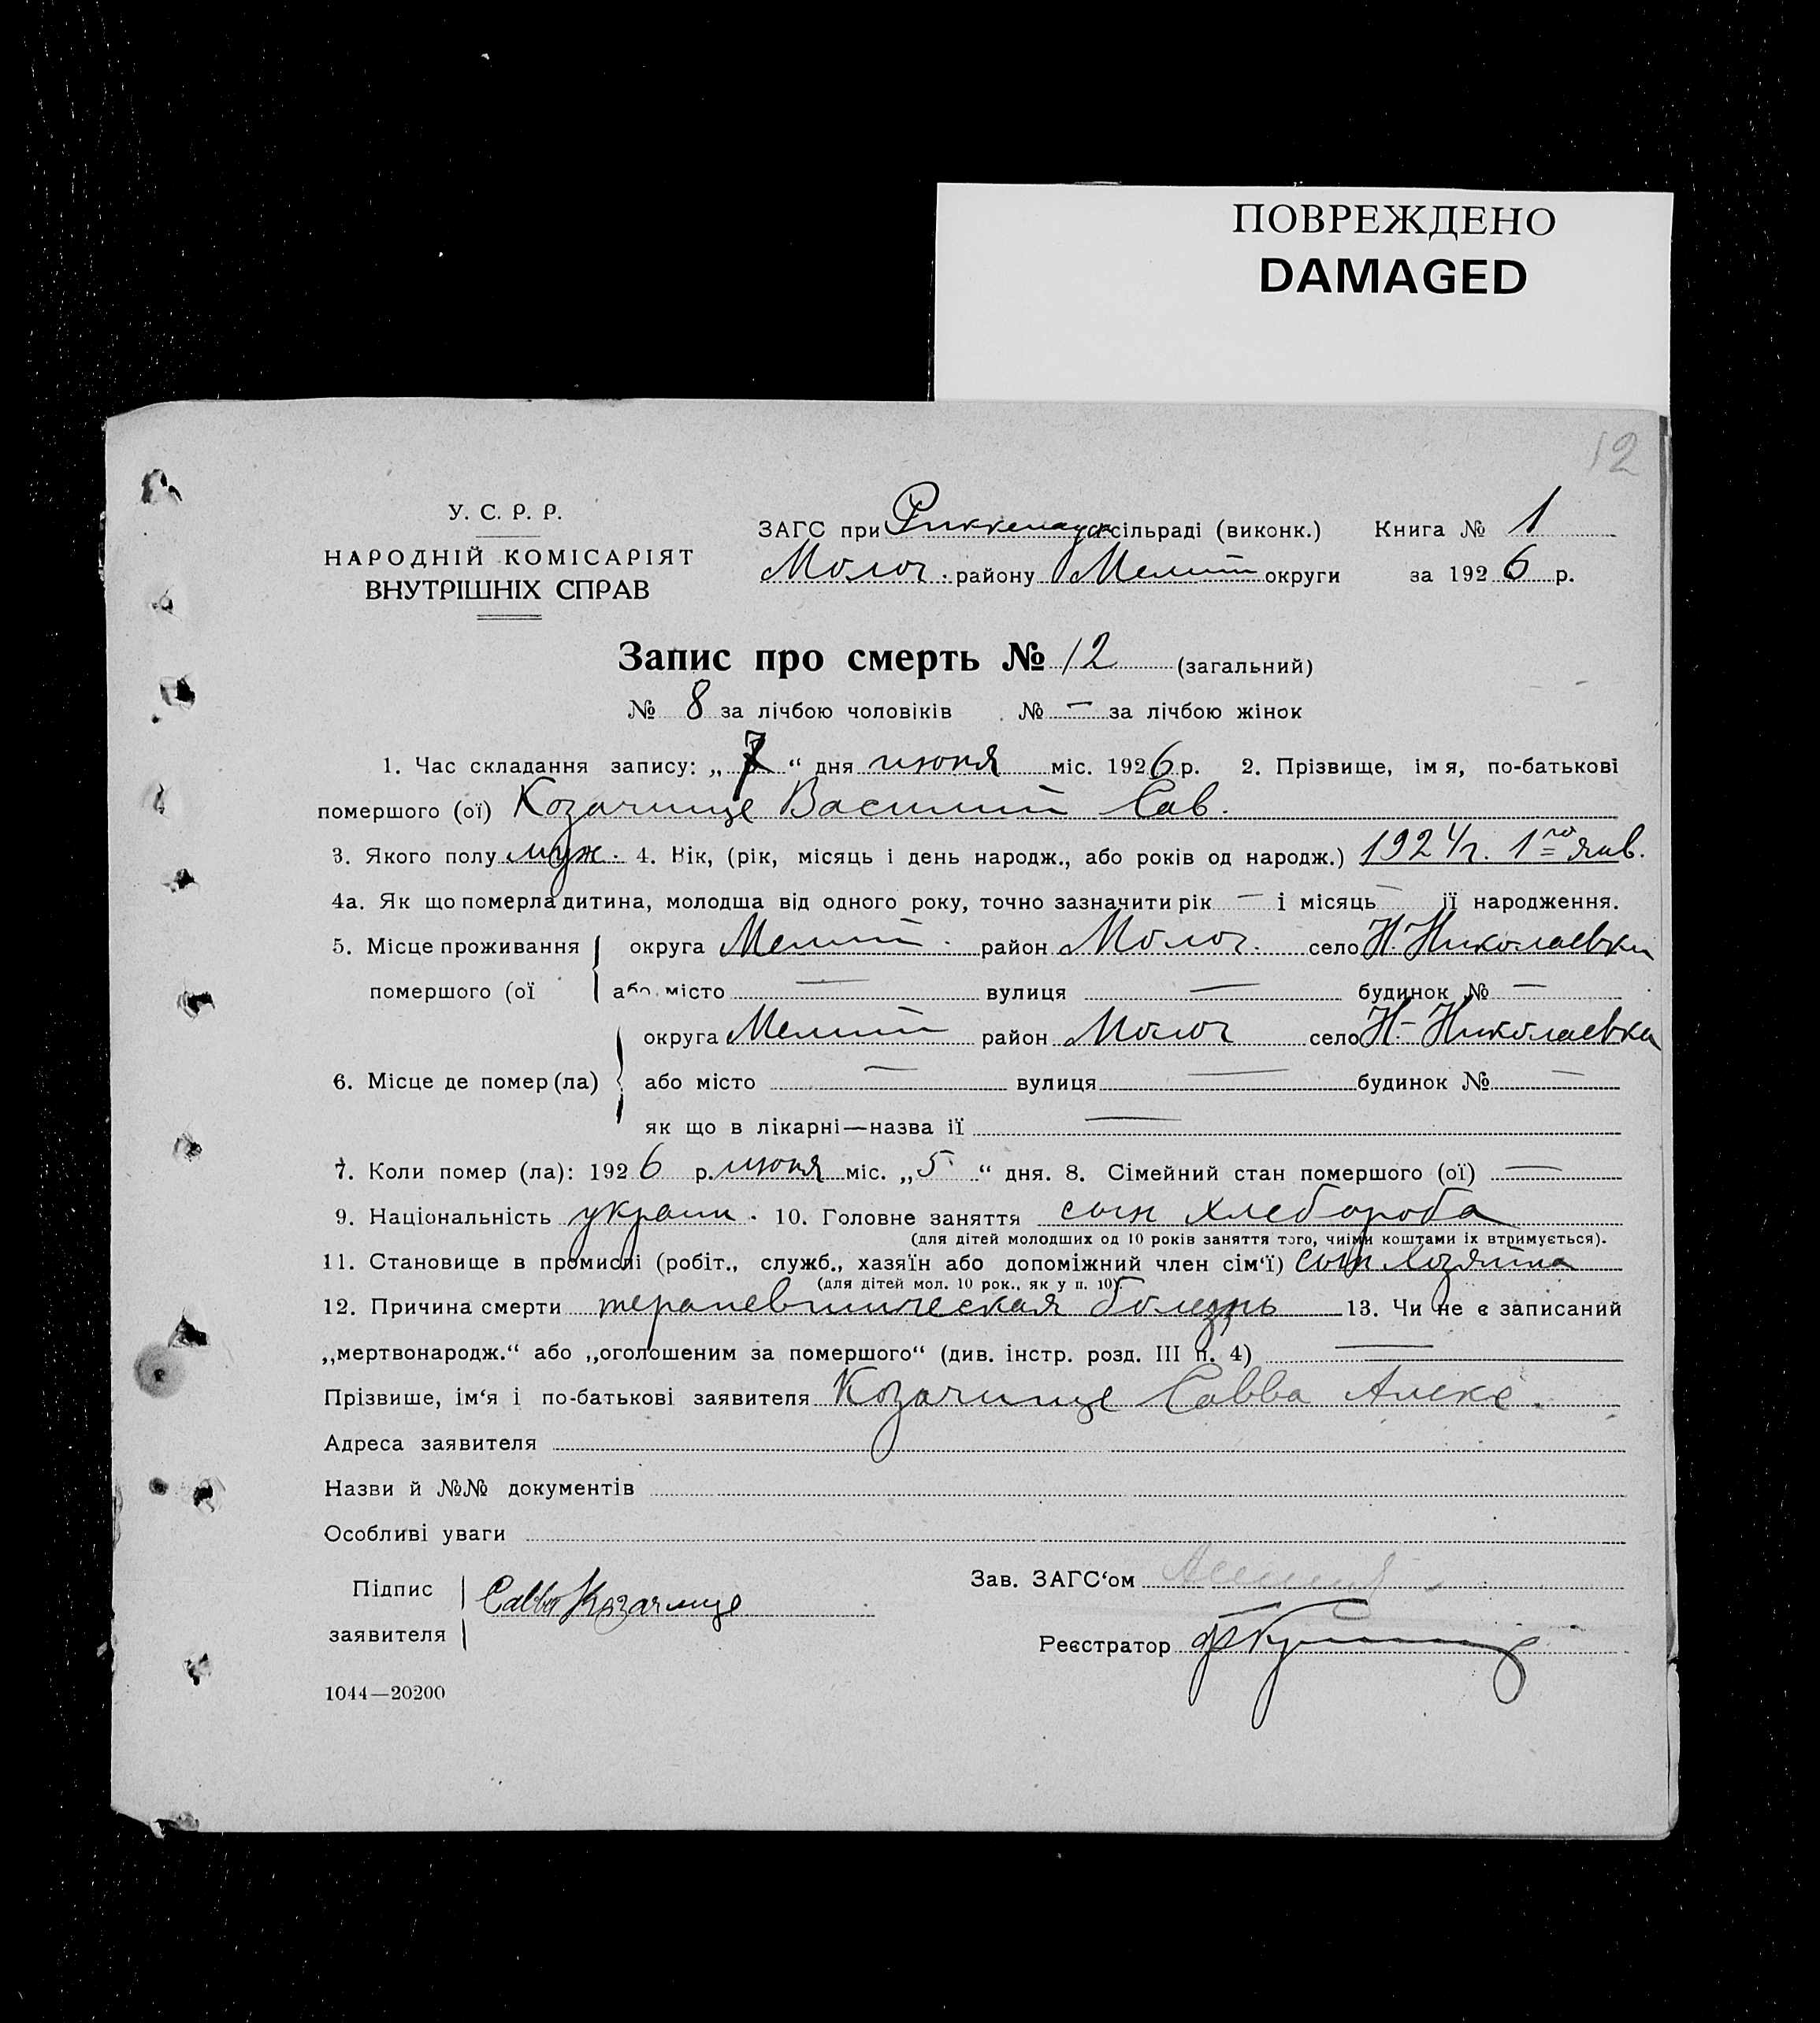 ПОВРЕЖДЕНО
DAMAGED
12
У. С. Р. Р.
НАРОДНІЙ КОМІСАРІЯТ
ВНУТРІШНІХ СПРАВ
ЗАГС при сільраді (виконк.) Книга № 1
Молоч. району Мелит округи за 1926 р.
Запис про смерть № 12 (загальний)
№ 8 за лічбою чоловіків № — за лічбою жінок
1. Час складання запису: „7“ дня июня міс. 1926 р. 2. Прізвище, імя, по-батькові
помершого (ої) Козачище Василий Сав.
3. Якого полу муж. 4. Вік, (рік, місяць і день народж., або років од народж.) 1924 г. 1го янв.
4а. Як що померла дитина, молодша від одного року, точно зазначити рік — і місяць — її народження.
5. Місце проживання округа Мелит. район Молоч. село Н. Николаевки
помершого (ої або місто — вулиця — будинок № —
округа Мелит район Молоч село Н-Николаевка
6. Місце де помер (ла) або місто — вулиця — будинок № —
як що в лікарні—назва ії —
7. Коли помер (ла): 1926 р. июня міс. „5“ дня. 8. Сімейний стан помершого (ої) —
9. Національність украин. 10. Головне заняття сын хлебороба
(для дітей молодших од 10 років заняття того, чиїми коштами їх втримується).
11. Становище в промислі (робіт., служб., хазяїн або допоміжний член сім‘ї) сын хозяина
(для дітей мол. 10 рок., як у п. 10).
12. Причина смерти терапевтическая болезнь 13. Чи не є записаний
„мертвонародж.“ або „оголошеним за помершого“ (див. інстр. розд. III п. 4) —
Прізвише, ім‘я і по-батькові заявителя Козачище Савва Алекс.
Адреса заявителя
Назви й №№ документів
Особливі уваги
Підпис заявителя Савва Козачище
Зав. ЗАГС‘ом
Реєстратор
1044—20200